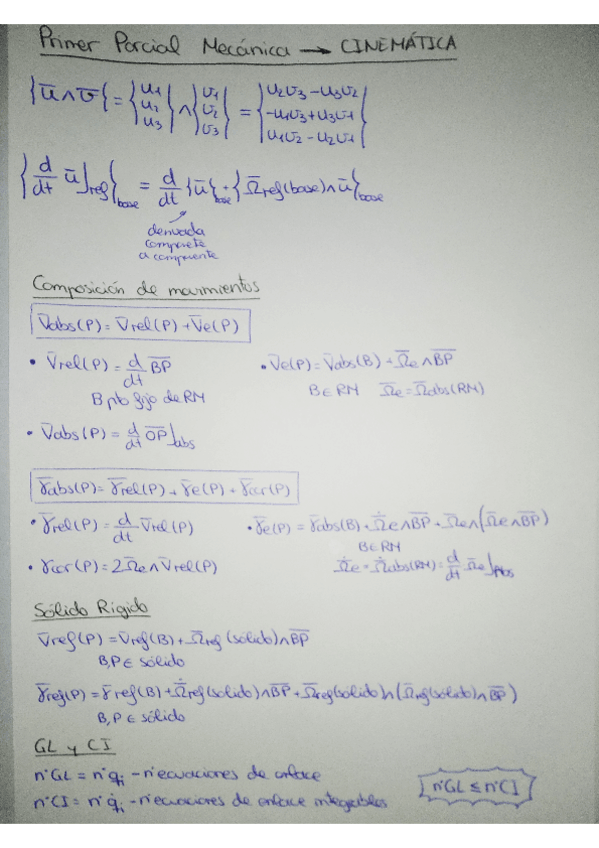 Primer Parcial Mecánica → CINEMÁTICA
{ū ∧ v̄} = {u₁ u₂ u₃} ∧ {v₁ v₂ v₃} = {u₂v₃ - u₃v₂ -u₁v₃ + u₃v₁ u₁v₂ - u₂v₁}
{d/dt ū]ref}base = d/dt {ū}base + {Ω̄ref(base) ∧ ū}base
derivada
componente
a componente
Composición de movimientos
v̄abs(P) = v̄rel(P) + v̄e(P)
• v̄rel(P) = d/dt BP • v̄e(P) = v̄abs(B) + Ω̄e ∧ BP
B pto fijo de RM B ∈ RM Ω̄e = Ω̄abs(RM)
• v̄abs(P) = d/dt OP]abs
γ̄abs(P) = γ̄rel(P) + γ̄e(P) + γ̄cor(P)
• γ̄rel(P) = d/dt v̄rel(P) • γ̄e(P) = γ̄abs(B) + Ω̄̇e ∧ BP + Ω̄e ∧ (Ω̄e ∧ BP)
B ∈ RM
• γ̄cor(P) = 2Ω̄e ∧ v̄rel(P) Ω̄̇e = Ω̄̇abs(RM) = d/dt Ω̄e]Abs
Sólido Rígido
v̄ref(P) = v̄ref(B) + Ω̄ref(sólido) ∧ BP
B, P ∈ sólido
γ̄ref(P) = γ̄ref(B) + Ω̄̇ref(sólido) ∧ BP + Ω̄ref(sólido) ∧ (Ω̄ref(sólido) ∧ BP)
B, P ∈ sólido
GL y CI
nºGL = nº q̇ᵢ - nº ecuaciones de enlace
nºCI = nº qᵢ - nº ecuaciones de enlace integrables
nºGL ≤ nºCI